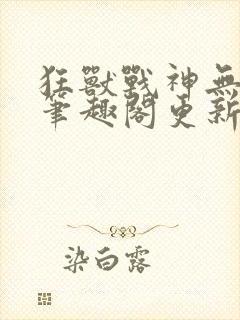 狂獸戰神無
筆趣閣更新
染白露